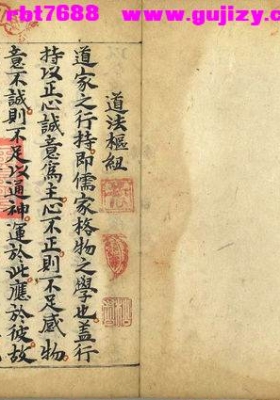 rbt7688  www.gujizy.c
道法樞紐
道家之行持即儒家格物之學也蓋行
持以正心誠意爲主心不正則不足感物
意不誠則不足以通神運於此應於彼故